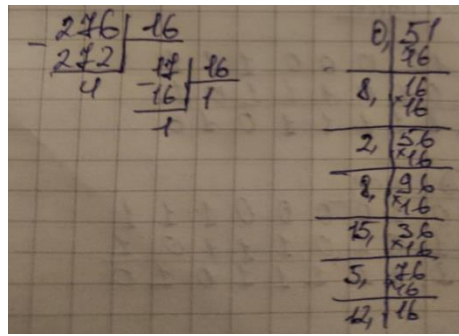 - 276 | 16
272 | - 17 | 16
4 16 | 1
1
0, | 51
16
8, | 16
×16
2, | 56
×16
8, | 96
×16
15, | 36
×16
5, | 76
×16
12, | 16